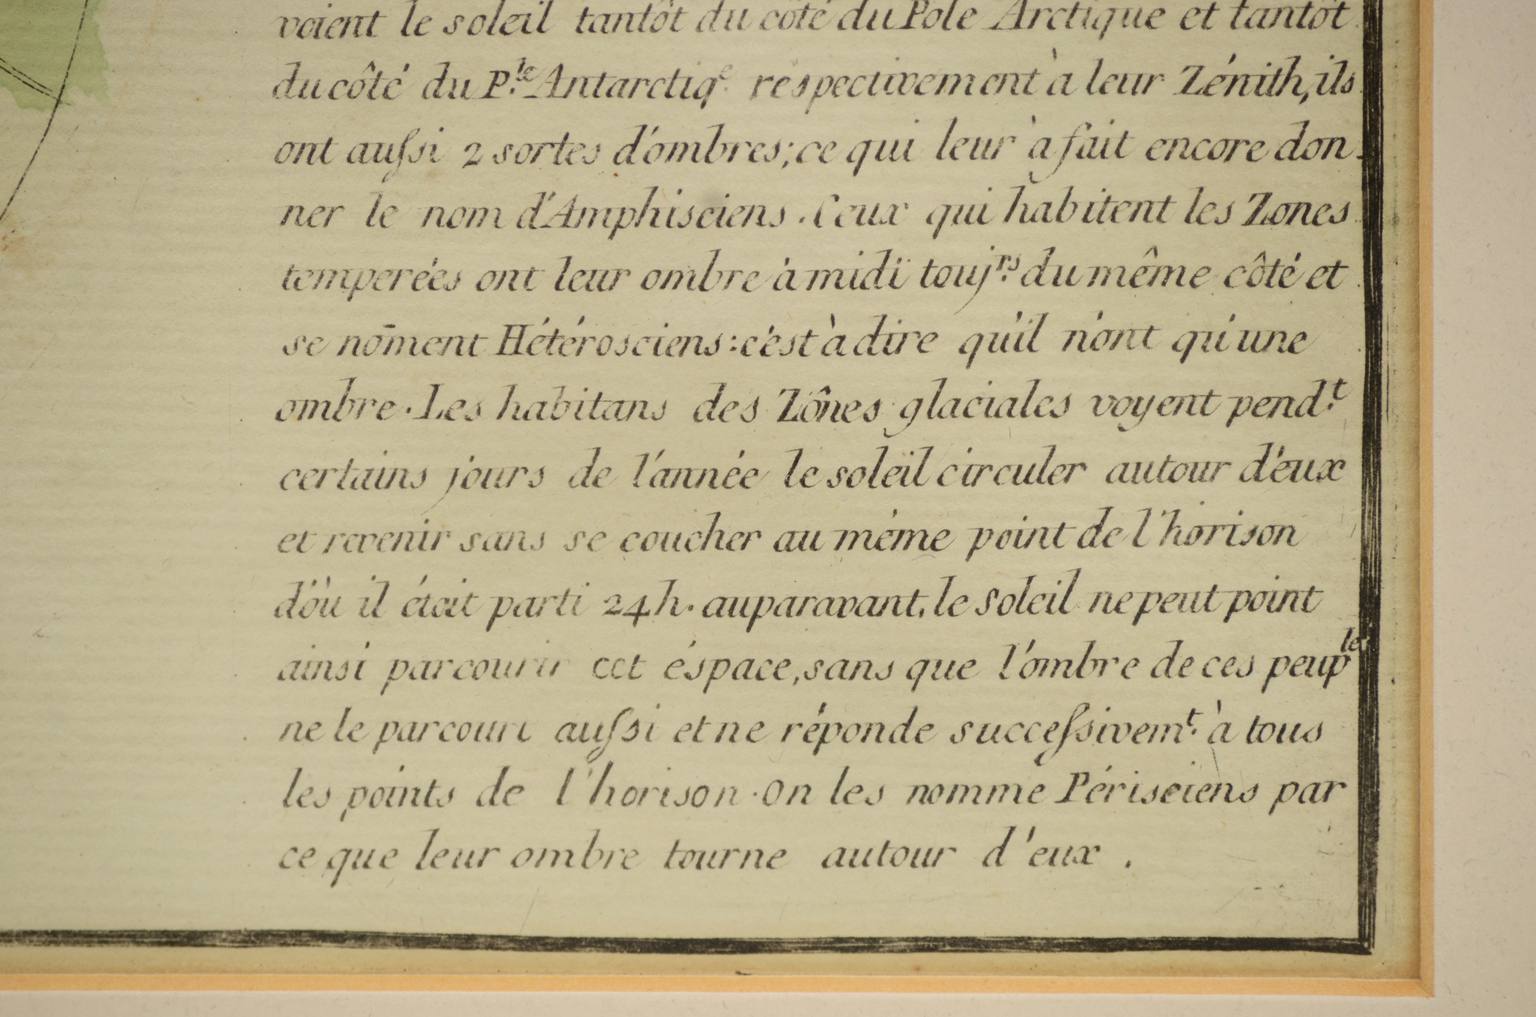 voient le soleil tantôt du côté du Pole Arctique et tantôt
du côté du P.le Antarctiqe respectivement à leur Zénith, ils
ont aussi 2 sortes d'ombres; ce qui leur à fait encore don
ner le nom d'Amphisciens. Ceux qui habitent les Zones
temperées ont leur ombre à midi toujrs. du même côté et
se nōment Hétérosciens: c'est à dire qu'il n'ont qu'une
ombre. Les habitans des Zônes glaciales voyent pend.t
certains jours de l'année le soleil circuler autour d'eux
et revenir sans se coucher au même point de l'horison
d'òu il étoit parti 24h. auparavant, le Soleil ne peut point
ainsi parcourir cet éspace, sans que l'ombre de ces peuples
ne le parcourt aussi et ne réponde successivem.t à tous
les points de l'horison. On les nomme Périsciens par
ce que leur ombre tourne autour d'eux.